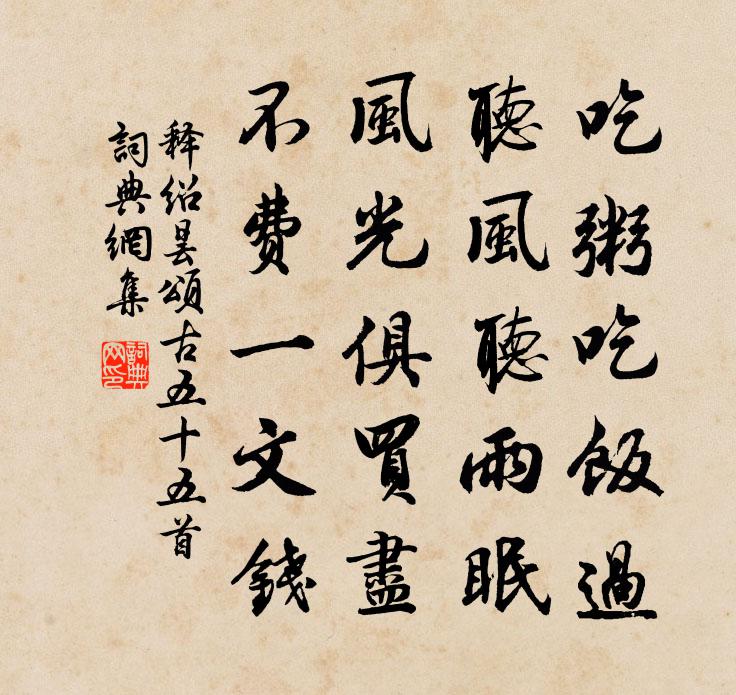 吃粥吃飯過
聽風聽雨眠
風光俱買盡
不費一文錢
释绍昙頌古五十五首
詞典網集
詞典网印